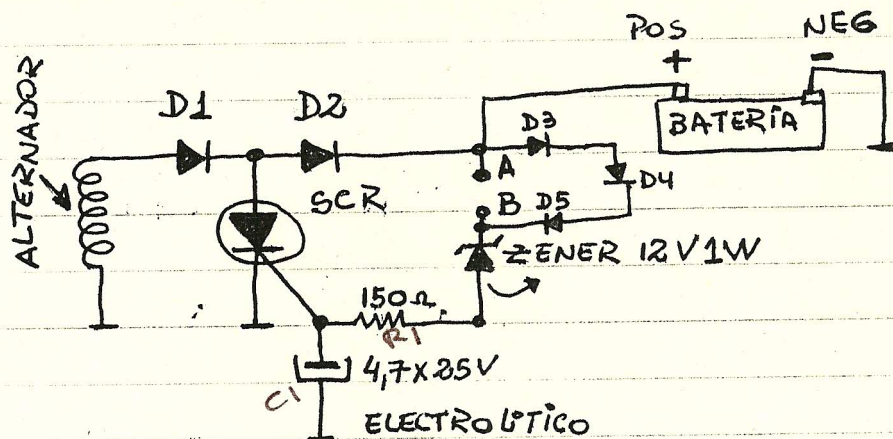 POS NEG
+ -
ALTERNADOR
D1 D2 D3
BATERÍA
A
D4
SCR
B D5
ZENER 12V1W
150Ω
R1
C1 4,7x25V
ELECTROLÍTICO